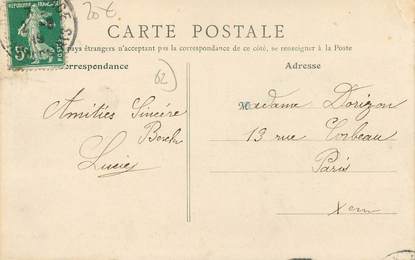 20€
CARTE POSTALE
pays étrangers n'acceptant pas la correspondance de ce côté, se renseigner à la Poste
Correspondance
Adresse
62
5c
Amitiés Sincère
Lucie
Madame Dorizon
13 rue Corbeau
Paris
Xem